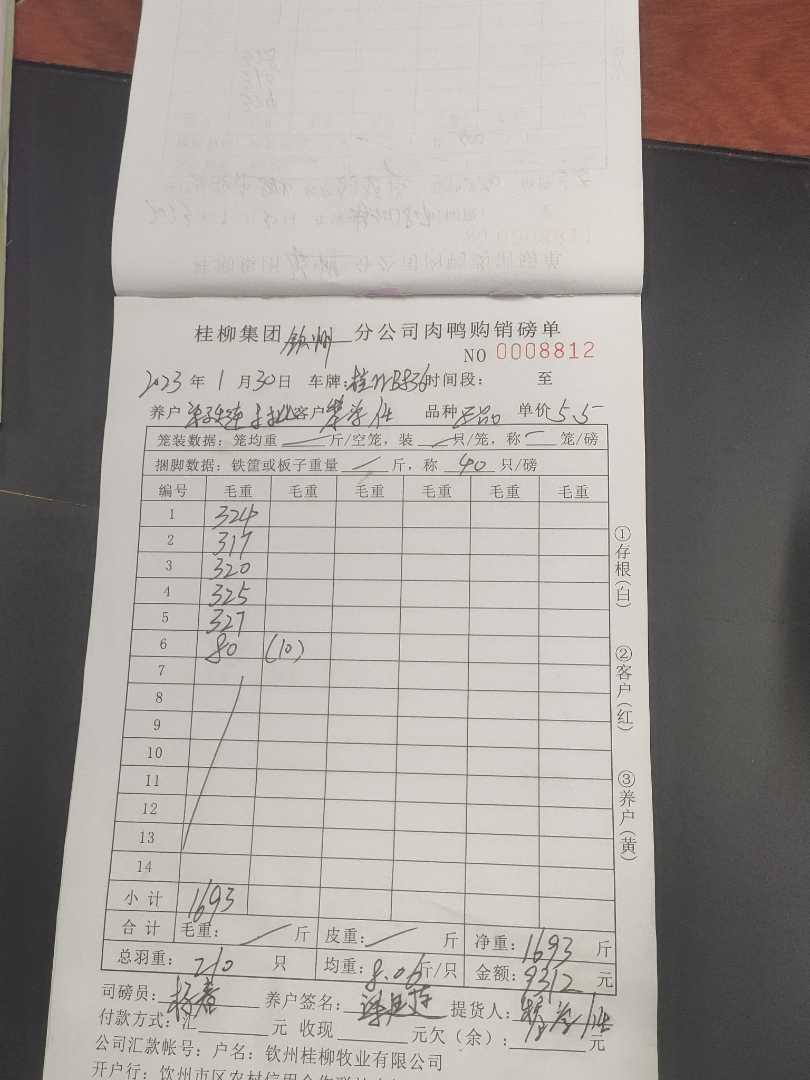 桂柳集团 钦州 分公司肉鸭购销磅单
NO 0008812
2023 年 1 月 30 日 车牌: 时间段: 至
养户 客户 品种 正品 单价 5.5
笼装数据: 笼均重 斤/空笼, 装 只/笼, 称 笼/磅
捆脚数据: 铁筐或板子重量 斤, 称 40 只/磅
编号 毛重 毛重 毛重 毛重 毛重 毛重
1 324
2 317
3 320
4 325
5 327
6 80 (10)
7
8
9
10
11
12
13
14
小计 1693
合计 毛重: 斤 皮重: 斤 净重: 1693 斤
总羽重: 210 只 均重: 8.06 斤/只 金额: 9312 元
司磅员: 养户签名: 提货人:
付款方式: 汇 元 收现 元欠(余): 元
公司汇款帐号: 户名: 钦州桂柳牧业有限公司
开户行: 钦州市区农村信用合作联社
①存根(白)
②客户(红)
③养户(黄)